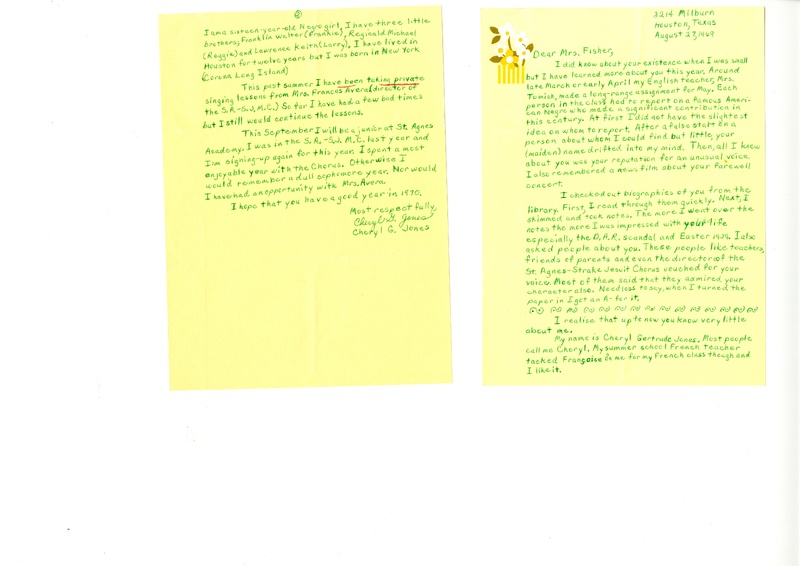 3214 Milburn
Houston, Texas
August 27, 1969
Dear Mrs. Fisher,
I did know about your existence when I was small
but I have learned more about you this year. Around
late March or early April my English teacher, Mrs.
Tomich, made a long-range assignment for May. Each
person in the class had to report on a famous Ameri-
can Negro who made a significant contribution in
this century. At first I did not have the slightest
idea on whom to report. After a false start on a
person about whom I could find but little, your
(maiden) name drifted into my mind. Then, all I knew
about you was your reputation for an unusual voice.
I also remembered a news film about your farewell
concert.
I checked out biographies of you from the
library. First, I read through them quickly. Next, I
skimmed and took notes. The more I went over the
notes the more I was impressed with your life
especially the D.A.R. scandal and Easter 1939. I also
asked people about you. These people like teachers,
friends of parents and even the director of the
St. Agnes-Strake Jesuit Chorus vouched for your
voice. Most of them said that they admired your
character also. Needless to say, when I turned the
paper in I got an A- for it.
I realise that up to now you know very little
about me.
My name is Cheryl Gertrude Jones. Most people
call me Cheryl. My summer school French teacher
tacked Françoise on me for my French class though and
I like it.
②
I am a sixteen-year-old Negro girl. I have three little
brothers, Franklin Walter (Frankie), Reginald Michael
(Reggie) and Lawrence Keith (Larry). I have lived in
Houston for twelve years but I was born in New York
(Corona Long Island)
This past summer I have been taking private
singing lessons from Mrs. Frances Avera (director of
the S.A.-S.J. M.C.) So far I have had a few bad times
but I still would continue the lessons.
This September I will be a junior at St. Agnes
Academy. I was in the S.A.-S.J. M.C. last year and
I'm signing-up again for this year. I spent a most
enjoyable year with the Chorus. Otherwise I
would remember a dull sophomore year. Nor would
I have had an opportunity with Mrs. Avera.
I hope that you have a good year in 1970.
Most respectfully,
Cheryl G. Jones
Cheryl G. Jones